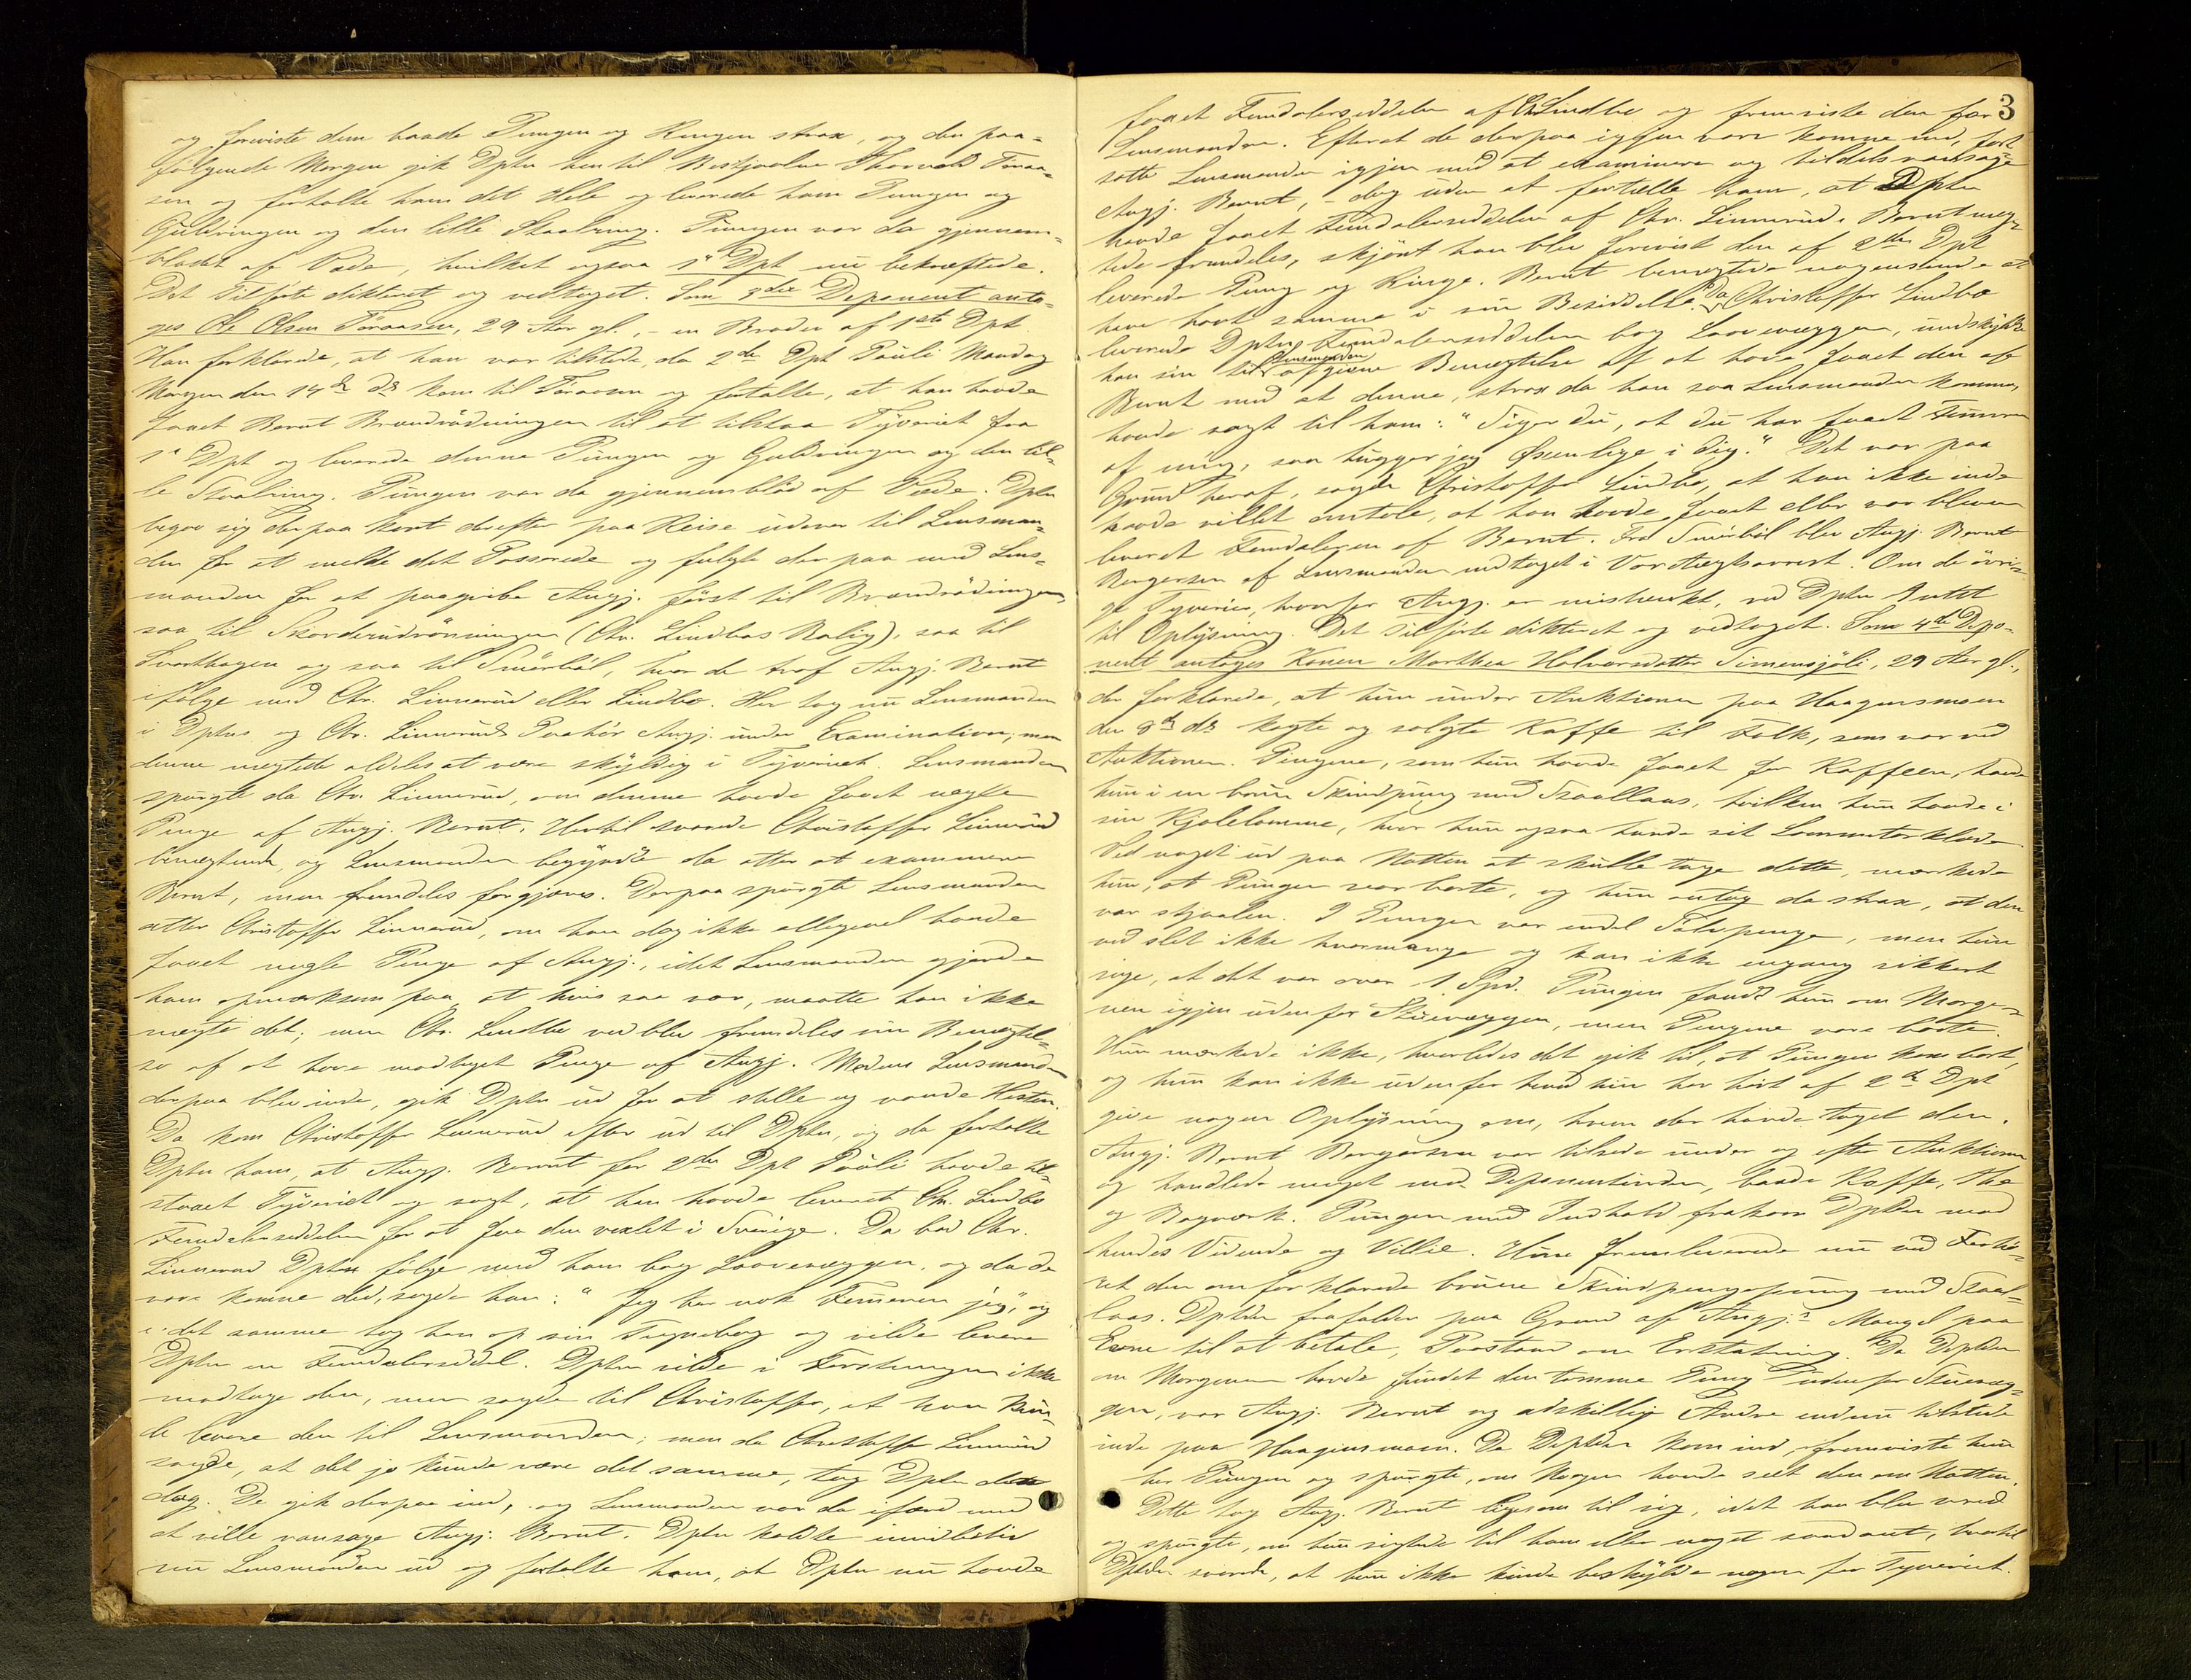 og foreviste dem baade Pungen og Ringen strax, og den paa-
følgende Morgen gik Dptn hen til Bestjaalne Thorvald Foraa-
sen og fortalte ham det Hele og leverede ham Pungen og
Guldringen og den lille Staalring. Pungen var da gjennem-
blødet af Væde, hvilket ogsaa 1ste Dpt nu bekræftede.
Det Tilførte dikteret og vedtaget. Som 3die Deponent anto-
ges Ole Olsen Foraasen, 29 Aar gl., – en Broder af 1ste Dpt
Han forklarede, at han var tilstede, da 2den Dpt Pauli Mandag
Morgen den 14de ds kom til Foraasen og fortalte, at han havde
faaet Bernt Brændrødningen til at tilstaa Tyveriet fra
1ste Dpt og leverede denne Pungen og Guldringen og den lil-
le Staalring. Pungen var da gjennemblød af Væde. Dptn
begav sig derpaa kort derefter paa Reise udover til Lensman-
den for at melde det Passerede og fulgte derpaa med Lens-
manden for at paagribe Angj. først til Brændrødningen,
saa til Skorderudrønningen (Chr. Lindbos Bolig), saa til
Svarthagen og saa til Smørhøl, hvor de traf Angj. Bernt
ifølge med Chr. Linnerud eller Lindbo. Her tog nu Lensmanden
i Dptns og Chr. Linneruds Paahør Angj. under Examination, men
denne nægtede aldeles at være skyldig i Tyveriet. Lensmanden
spurgte da Chr. Linnerud, om denne havde faaet nogle
Penge af Angj. Bernt. Hertil svarede Christoffer Linnerud
benægtende, og Lensmanden begyndte da atter at examinere
Bernt, men fremdeles forgjæves. Derpaa spurgte Lensmanden
atter Christoffer Linnerud, om han dog ikke allegevel havde
faaet nogle Penge af Angj., idet Lensmanden gjorde
ham opmærksom paa, at hvis saa var, maatte han ikke
nægte det; men Chr. Lindbo ved blev fremdeles sin Benægtel-
se af at have modtaget Penge af Angj. Medens Lensmanden
derpaa blev inde, gik Dptn ud for at stelle og vande Hesten.
Da kom Christoffer Linnerud efter ud til Dptn, og da fortalte
Dptn ham, at Angj. Bernt for 2den Dpt Pauli havde til-
staaet Tyveriet og sagt, at han havde leveret Chr. Lindbo
Femdalerseddelen for at faa den vexlet i Sverige. Da bad Chr.
Linnerud Dptn følge med ham bag Laavevæggen, og da de
vare komne did, sagde han: "Jeg har nok Femmeren jeg", og
i det samme tog han op sin Tegnebog og vilde levere
Dptn en Femdalerseddel. Dptn vilde i Førstningen ikke
modtage den, men sagde til Christoffer, at han kun-
de levere den til Lensmanden; men da Christoffer Linnerud
sagde, at det jo kunde være det samme, tog Dptn den
dog. De gik derpaa ind, og Lensmanden var da ifærd med
at ville ransage Angj. Bernt. Dptn kaldte imidlertid
nu Lensmanden ud og fortalte ham, at Dptn nu havde
3
faaet Femdalerseddelen af Chr. Lindbo og fremviste den for
Lensmanden. Efterat de derpaa igjen vare komne ind, fort-
satte Lensmanden igjen med at examinere og tildels ransage
Angj. Bernt, – dog uden at fortælle ham, at Dptn
havde faaet Femdalerseddelen af Chr. Linnerud. Bernt næg-
tede fremdeles, skjønt han blev forevist den af 2den Dpt
leverede Pung og Ringe. Bernt benægtede nogensinde at
have havt samme i sin Besiddelse. Da Christoffer Lindbo
leverede Dptn Femdalerseddelen bag Laavevæggen, undskyldte
han sin til Lensmanden afgivne Benægtelse af at have faaet den af
Bernt med at denne, strax da han saa Lensmanden komme,
havde sagt til ham: "Siger du, at du har faaet Femmeren
af mig, saa hugger jeg Øxen lige i dig." Det var paa
Grund heraf, sagde Christoffer Lindbo, at han ikke inde
havde villet omtale, at han havde faaet eller var bleven
leveret Femdaleren af Bernt. Fra Smørhøl blev Angj. Bernt
Bergersen af Lensmanden medtaget i Varetægtsarrest. Om de øvri-
ge Tyverier, hvorfor Angj. er mistænkt, ved Dptn Intet
til Oplysning. Det Tilførte dikteret og vedtaget. Som 4de Depo-
nent antoges Konen Marthea Halvorsdatter Simensjøli, 29 Aar gl.,
der forklarede, at hun under Auktionen paa Haagensmoen
den 8de ds kogte og solgte Kaffe til Folk, som var ved
Auktionen. Pengene, som hun havde faaet for Kaffeen, havde
hun i en brun Skindpung med Staallaas, hvilken hun havde i
sin Kjolelomme, hvor hun ogsaa havde sit Lommetørklæde.
Ved noget ud paa Natten at skulle tage dette, mærkede
hun, at Pungen var borte, og hun antog da strax, at den
var stjaalen. I Pungen var endel Sølvpenge, men hun
ved slet ikke hvormange og kan ikke engang sikkert
sige, at det var over 1 Spd. Pungen fandt hun om Morge-
nen igjen udenfor Stuevæggen, men Pengene vare borte.
Hun mærkede ikke, hvorledes det gik til, at Pungen kom bort,
og hun kan ikke udenfor hvad hun har hørt af 2den Dpt
give nogen Oplysning om, hvem der havde taget den.
Angj. Bernt Bergersen var tilstede under og efter Auktionen
og handlede meget med Deponentinden, baade Kaffe, The
og Bagværk. Pungen med Indhold frakom Dptn mod
hendes Vidende og Villie. Hun fremleverede nu ved Forhø-
ret den omforklarede brune Skindpengepung med Staal-
laas. Dptn frafalder paa Grund af Angj.s Mangel paa
Evne til at betale, Paastand om Erstatning. Da Dptn
om Morgenen havde fundet den tomme Pung udenfor Stuevæg-
gen, var Angj. Bernt og adskillige Andre endnu tilstede
inde paa Haagensmoen. Da Dptn kom ind, fremviste hun
her Pungen og spurgte, om Nogen havde seet den om Natten.
Dette tog Angj. Bernt ligesom til sig, idet han blev vred
og spurgte, om hun sigtede til ham eller noget saadant, hvortil
Dptn svarede, at hun ikke kunde beskylde nogen for Tyveriet.